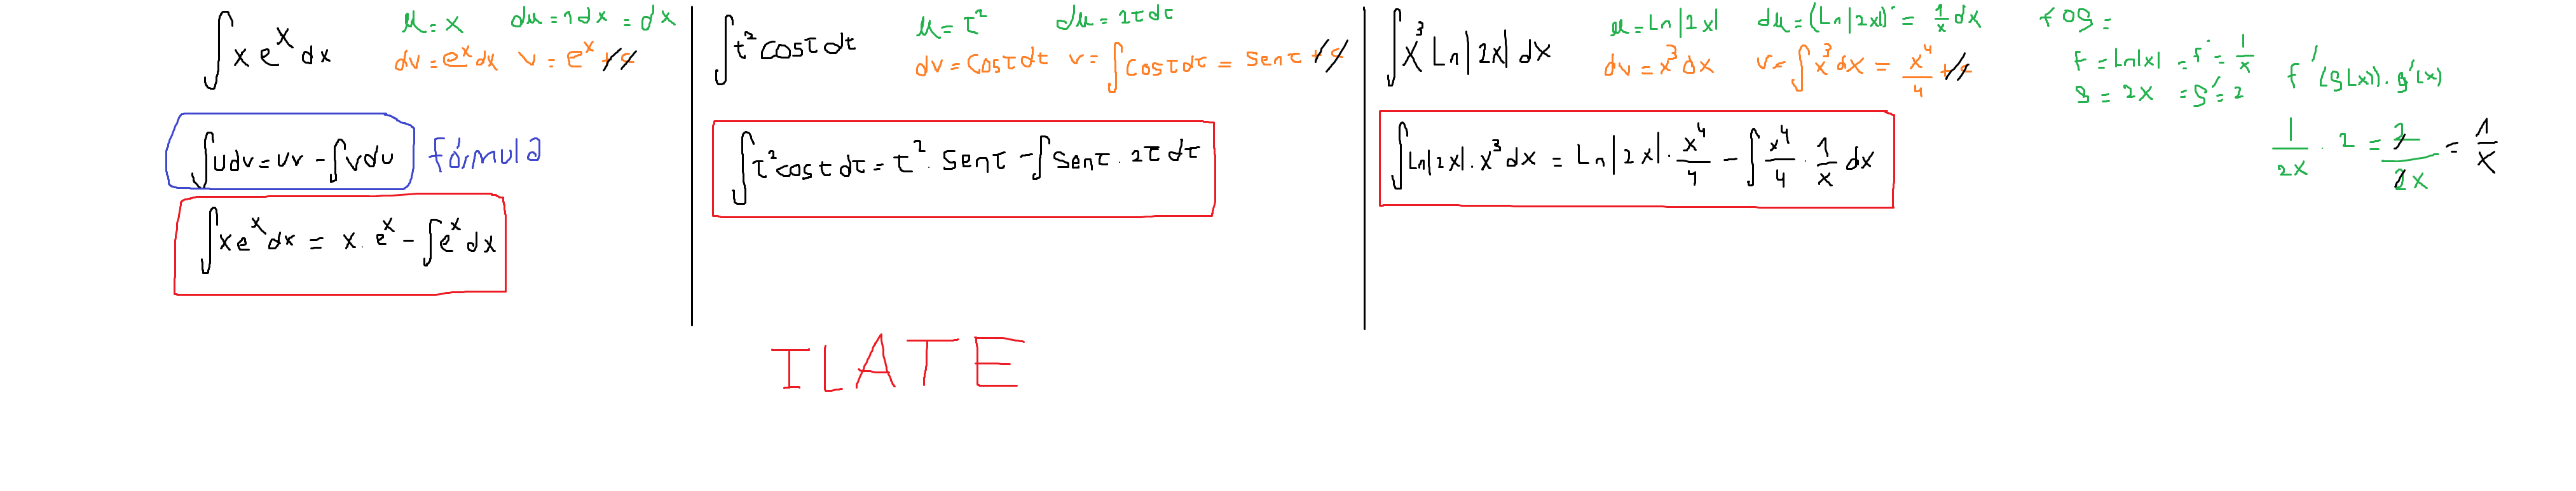 ∫ x e^x dx
u = x   du = 1dx = dx
dv = e^x dx   v = e^x + c
∫ u dv = uv - ∫ v du   fórmula
∫ x e^x dx = x · e^x - ∫ e^x dx
∫ t² cos t dt
u = t²   du = 2t dt
dv = cos t dt   v = ∫ cos t dt = sen t + c
∫ t² cos t dt = t² · sen t - ∫ sen t · 2t dt
∫ x³ Ln|2x| dx
u = Ln|2x|   du = (Ln|2x|)' = 1/x dx
dv = x³ dx   v = ∫ x³ dx = x⁴/4 + c
∫ Ln|2x| · x³ dx = Ln|2x| · x⁴/4 - ∫ x⁴/4 · 1/x dx
fog =
f = Ln|x| = f' = 1/x
g = 2x = g' = 2
f'(g(x)) · g'(x)
1/2x · 2 = 2/2x = 1/x
ILATE